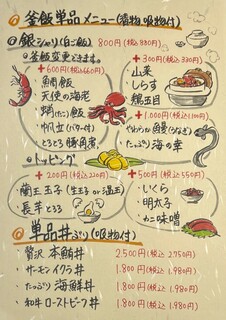 釜飯単品メニュー(漬物 吸物付)
◎銀シャリ(白ご飯) 800円(税込880円)
釜飯変更できます。
+600円(税込660円)
・鯛飯
・天使の海老
・蛸(たこ)飯
・帆立(バター付)
・とろとろ豚角煮
+300円(税込330円)
・山菜
・しらす
・鶏五目
+1.000円(税込1.100円)
・やわらか鰻(うなぎ)
・たっぷり海の幸
◎トッピング
+200円(税込220円)
・蘭王玉子(生玉 or 温玉)
・長芋とろろ
+500円(税込550円)
・いくら
・明太子
・かに味噌
◎単品丼ぶり(吸物付)
・贅沢 本鮪丼 2.500円(税込2.750円)
・サーモンイクラ丼 1.800円(税込1.980円)
・たっぷり海鮮丼 1.800円(税込1.980円)
・和牛ローストビーフ丼 1.800円(税込1.980円)